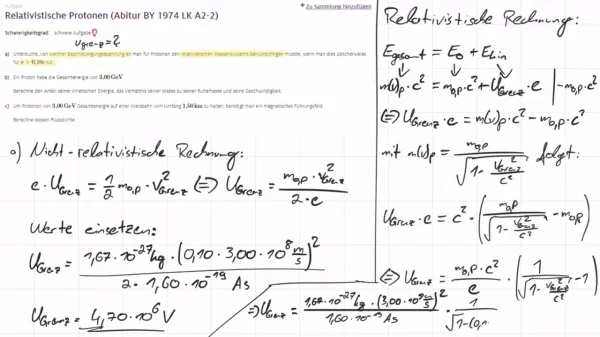 Aufgabe
Relativistische Protonen (Abitur BY 1974 LK A2-2)
+ Zu Sammlung hinzufügen
Schwierigkeitsgrad: schwere Aufgabe
U_Grenz = ?
a) Untersuche, von welcher Beschleunigungsspannung an man für Protonen den relativistischen Massenzuwachs berücksichtigen müsste, wenn man dies üblicherweise
für v > 0,10c tut.
b) Ein Proton habe die Gesamtenergie von 3,00 GeV.
Berechne den Anteil seiner kinetischen Energie, das Verhältnis seiner Masse zu seiner Ruhemasse und seine Geschwindigkeit.
c) Um Protonen von 3,00 GeV Gesamtenergie auf einer Kreisbahn vom Umfang 1,50 km zu halten, benötigt man ein magnetisches Führungsfeld.
Berechne dessen Flussdichte.
a) Nicht-relativistische Rechnung:
e · U_Grenz = 1/2 m_0,P · v_Grenz^2 <=> U_Grenz = (m_0,P · v_Grenz^2) / (2 · e)
Werte einsetzen:
U_Grenz = (1,67 · 10^-27 kg · (0,10 · 3,00 · 10^8 m/s)^2) / (2 · 1,60 · 10^-19 As)
U_Grenz = 4,70 · 10^6 V
Relativistische Rechnung:
E_gesamt = E_0 + E_kin
m(v)_P · c^2 = m_0,P · c^2 + U_Grenz · e | - m_0,P · c^2
<=> U_Grenz · e = m(v)_P · c^2 - m_0,P · c^2
mit m(v)_P = m_0,P / √(1 - v_Grenz^2/c^2) folgt:
U_Grenz · e = c^2 · (m_0,P / √(1 - v_Grenz^2/c^2) - m_0,P)
<=> U_Grenz = (m_0,P · c^2) / e · (1 / √(1 - v_Grenz^2/c^2) - 1)
=> U_Grenz = (1,67 · 10^-27 kg · (3,00 · 10^8 m/s)^2) / (1,60 · 10^-19 As) · 1 / √(1-(0,1